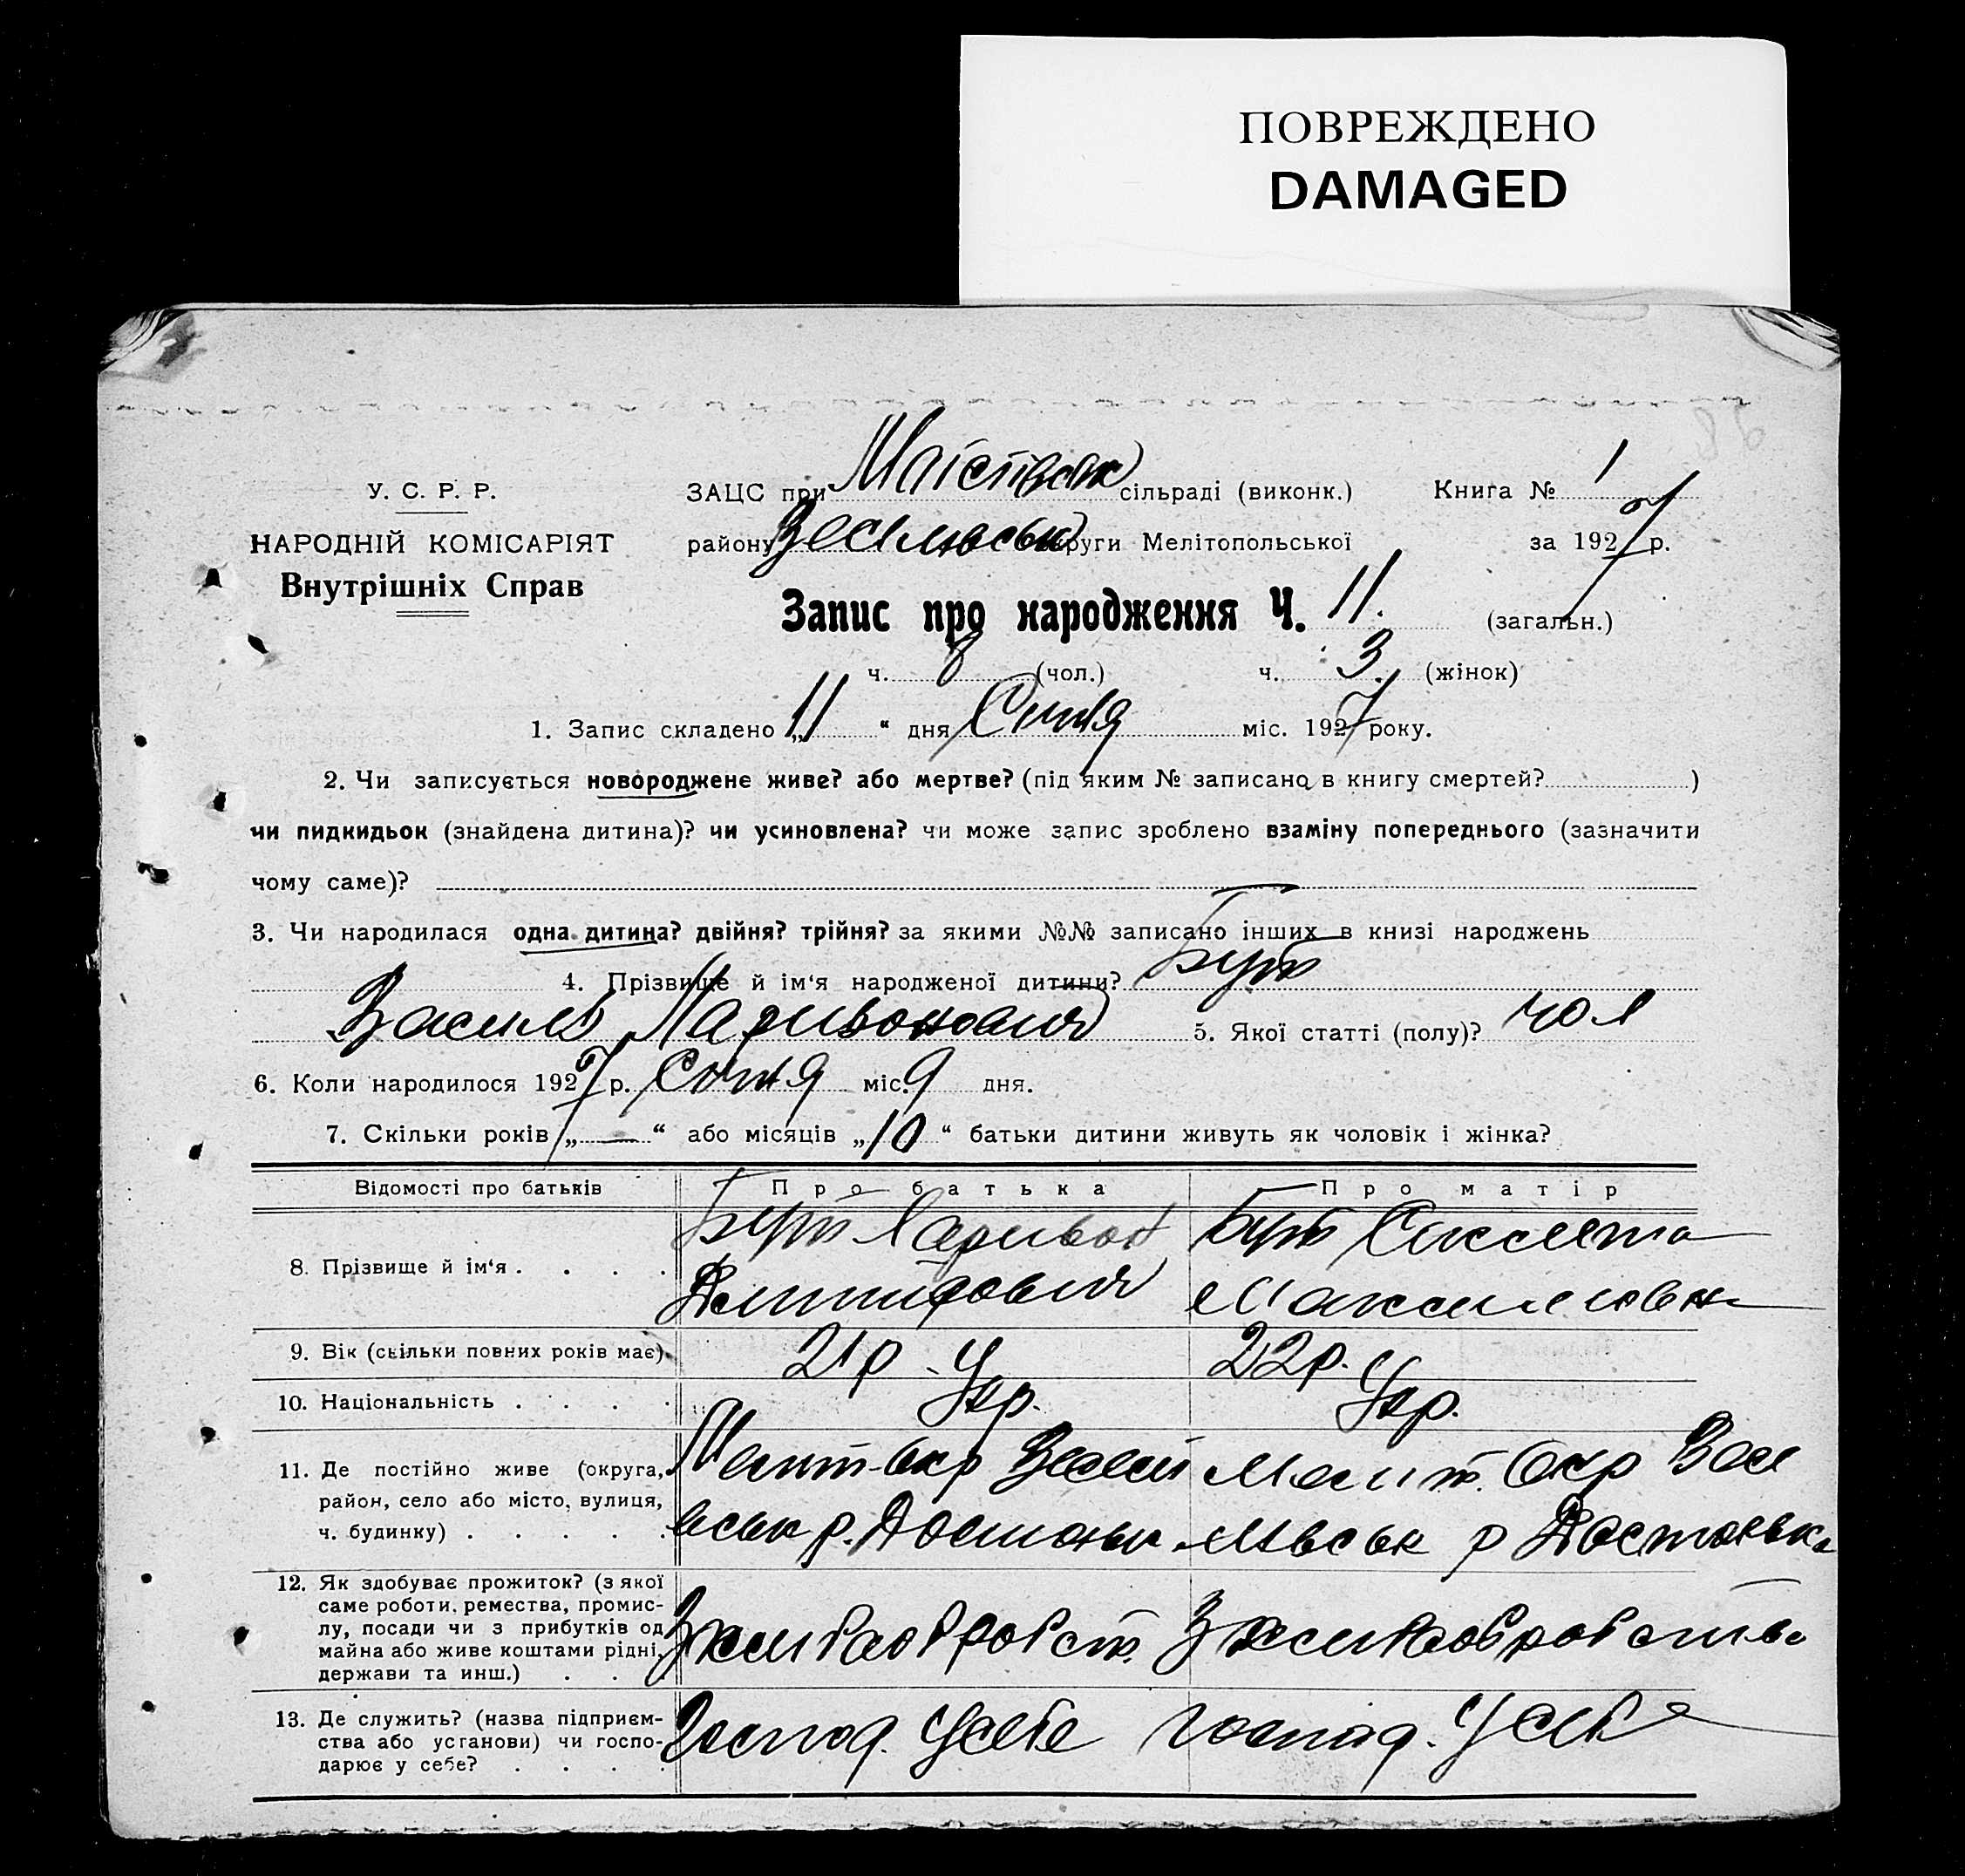 ПОВРЕЖДЕНО
DAMAGED
У. С. Р. Р.
НАРОДНІЙ КОМІСАРІЯТ
Внутрішніх Справ
ЗАЦС при сільраді (виконк.) Книга № 1
району округи Мелітопольської за 1927 р.
Запис про народження Ч. 11. (загальн.)
ч. 8 (чол.) ч. 3 (жінок)
1. Запис складено „11“ дня Січня міс. 1927 року.
2. Чи записується новороджене живе? або мертве? (під яким № записано в книгу смертей? )
чи пидкидьок (знайдена дитина)? чи усиновлена? чи може запис зроблено взаміну попереднього (зазначити
чому саме)?
3. Чи народилася одна дитина? двійня? трійня? за якими №№ записано інших в книзі народжень
4. Прізвище й ім‘я народженої дитини? Бут
Василь Ларивонович 5. Якої статті (полу)? чол
6. Коли народилося 1927 р. Січня міс. 9 дня.
7. Скільки років „—“ або місяців „10“ батьки дитини живуть як чоловік і жінка?
Відомості про батьків Про батька Про матір
8. Прізвище й ім‘я . . . . Бут Ларивон Бут
Максимовна
9. Вік (скільки повних років має). 21 р 22 р.
10. Національність . . . . Укр. Укр.
11. Де постійно живе (округа, Меліт. Окр
район, село або місто, вулиця, р
ч. будинку) . . . . .
12. Як здобуває прожиток? (з якої
саме роботи, ремества, промис-
лу, посади чи з прибутків од
майна або живе коштами рідні,
держави та инш.) . . .
13. Де служить? (назва підприєм-
ства або установи) чи госпо- Господ. Усебе Господ. Усебе
дарює у себе? . . . .